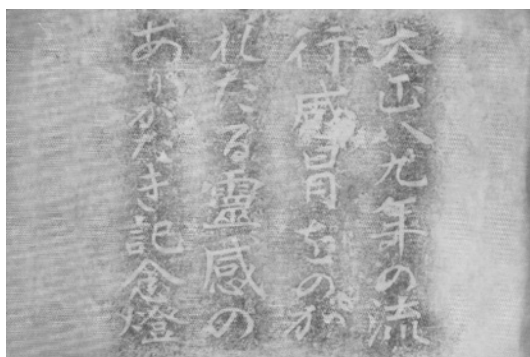 大正八九年の流
行感冒をのが
れたる靈感の
ありがたき記念燈